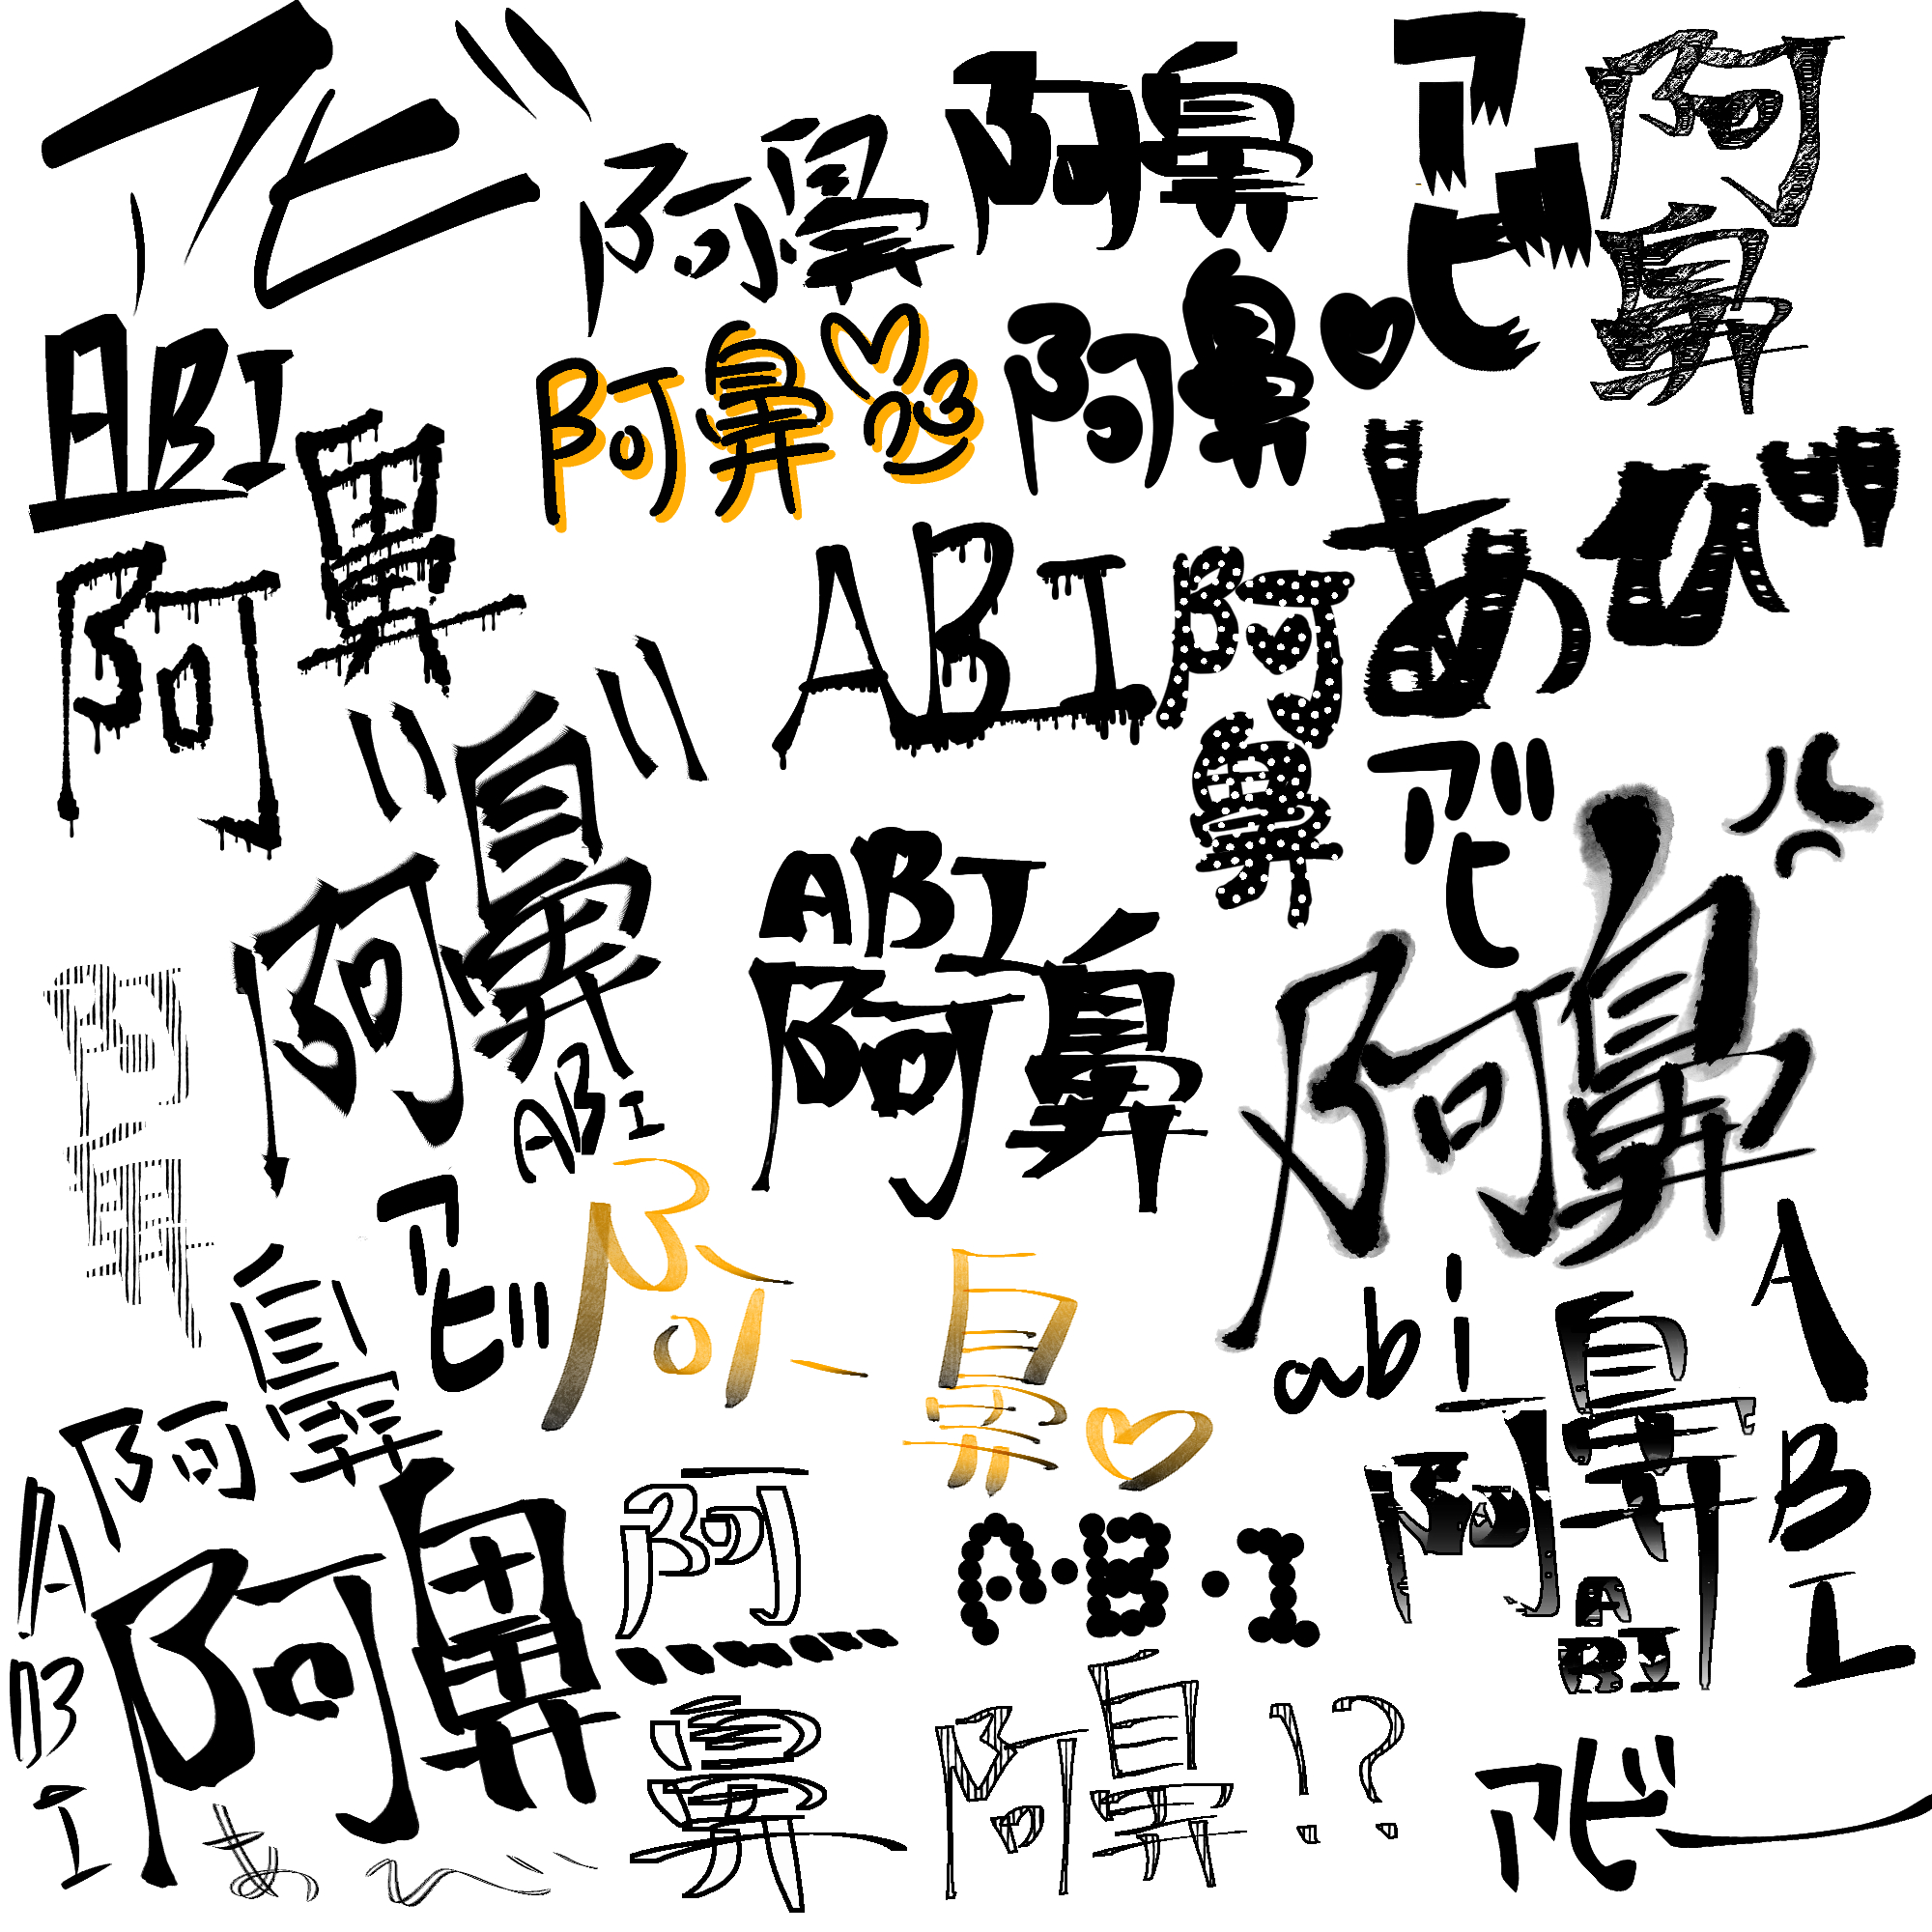 アビ
阿鼻
阿鼻
アビ
阿鼻
ABI
阿鼻
阿鼻
阿鼻
阿鼻
ABI
阿鼻
あび
阿鼻
アビ
ABI
阿鼻
阿鼻
阿鼻
ABI
アビ
阿鼻
阿鼻
阿鼻
abi
ABI
阿鼻
ABI
ABI
阿鼻
阿鼻
A・B・I
阿鼻!?
あび
アビ